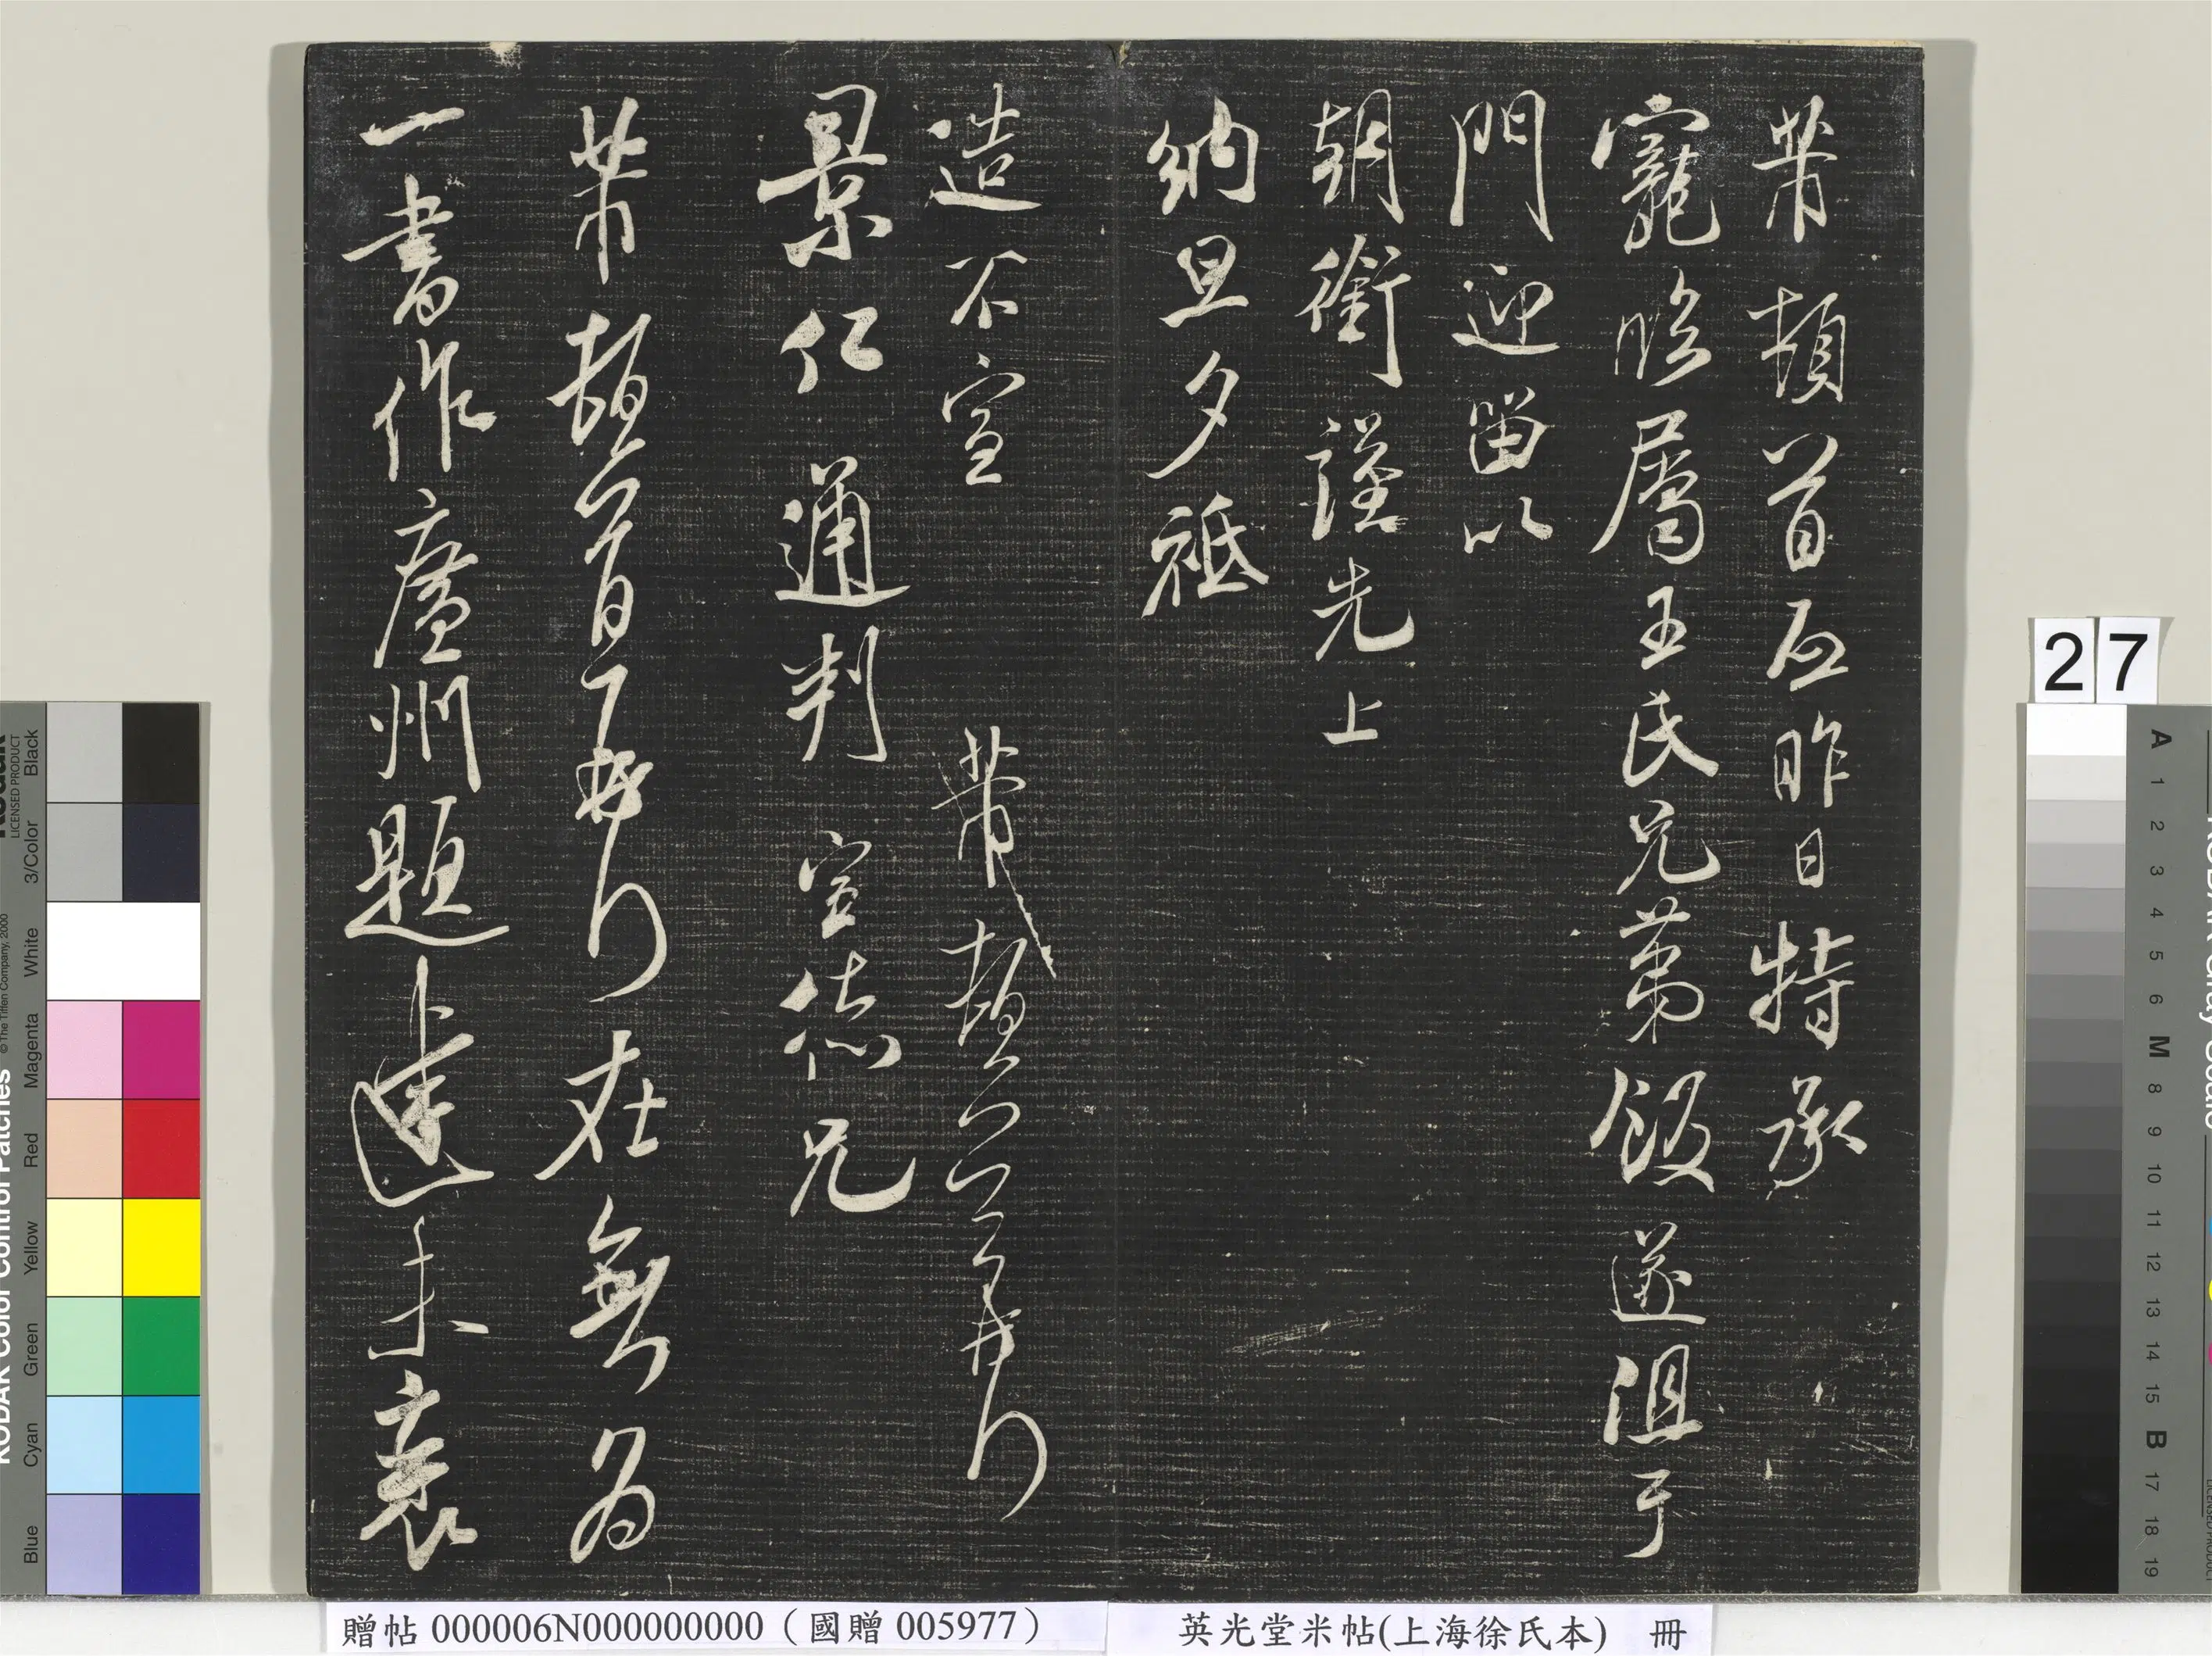 芾頓首 昨日特承
寵臨屬王氏兄弟飯遂沮于
門迎留以
朝銜謹先上
納旦夕祗
造不宣 芾頓首
景仁通判宣德兄
芾頓首再拜在無為
一書作廣州題達未衰
27
贈帖 000006N000000000(國贈 005977)
英光堂米帖(上海徐氏本) 冊
KODAK Color Control Patches
LICENSED PRODUCT
© The Tiffen Company, 2000
Blue Cyan Green Yellow Red Magenta White 3/Color Black
A 1 2 3 4 5 6 M 8 9 10 11 12 13 14 15 B 17 18 19